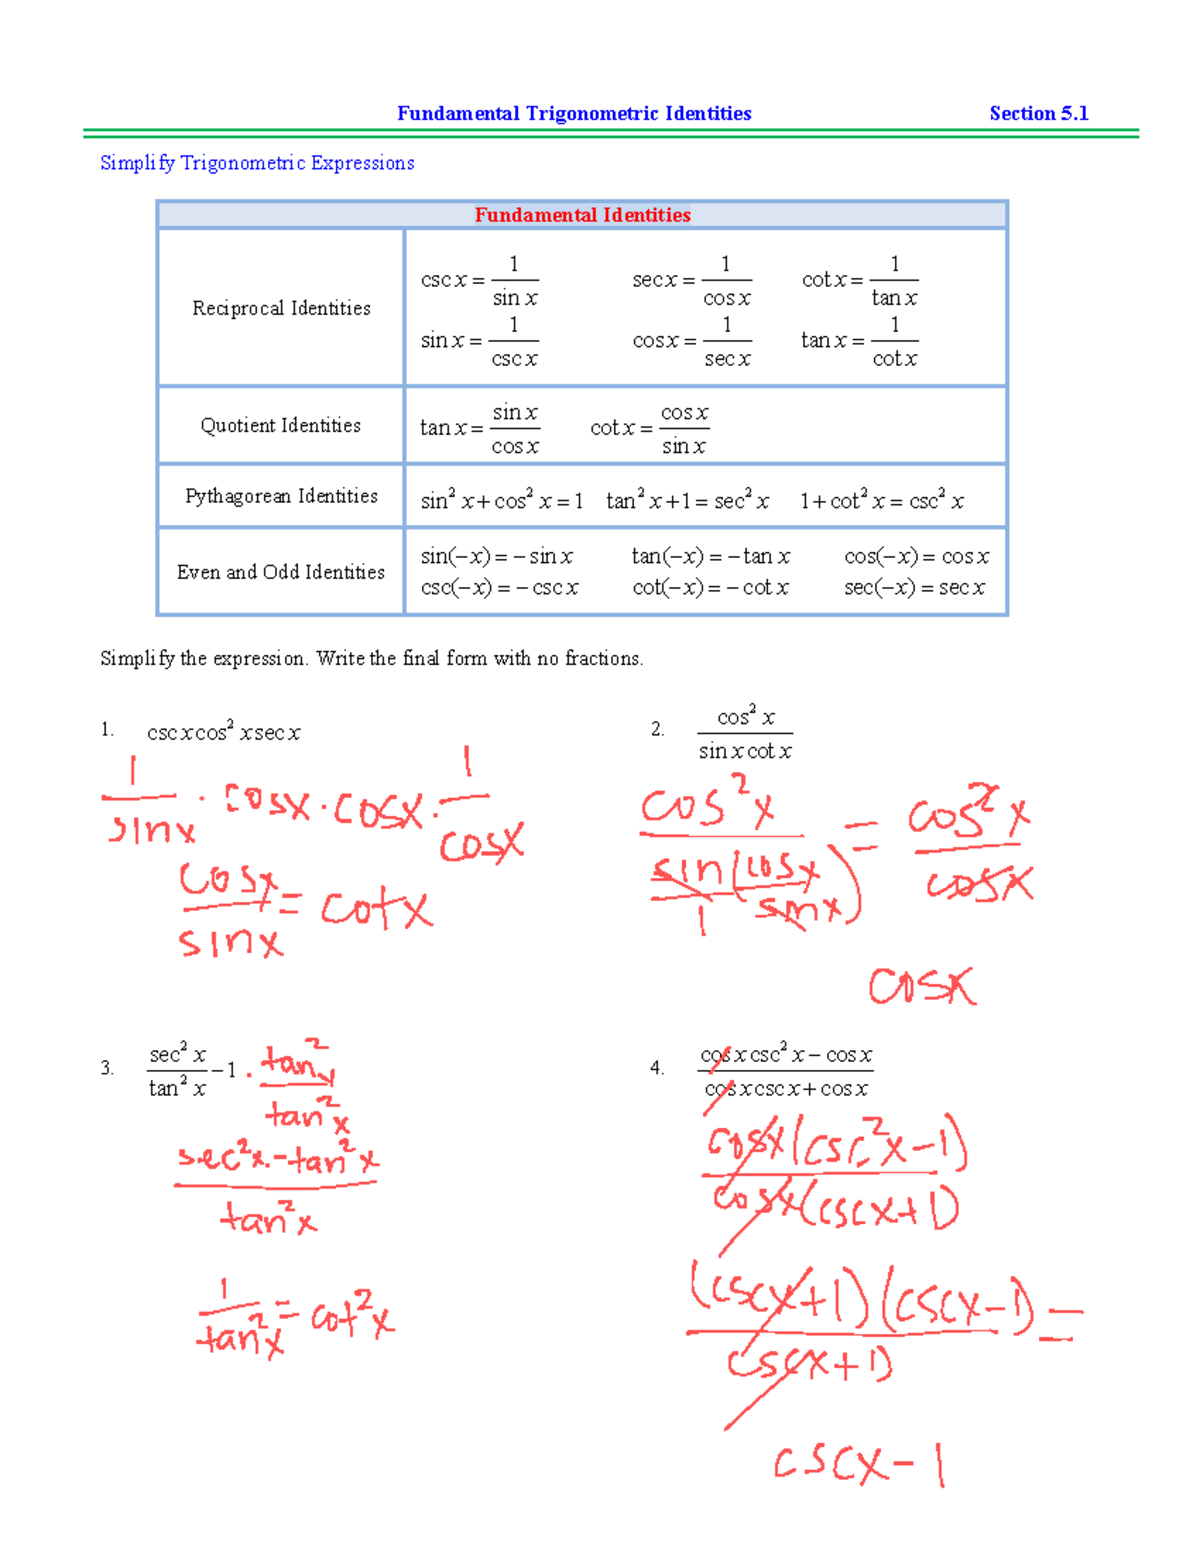 Fundamental Trigonometric Identities Section 5.1
Simplify Trigonometric Expressions
Fundamental Identities
Reciprocal Identities
csc x = 1/sin x sec x = 1/cos x cot x = 1/tan x
sin x = 1/csc x cos x = 1/sec x tan x = 1/cot x
Quotient Identities
tan x = sin x/cos x cot x = cos x/sin x
Pythagorean Identities
sin² x + cos² x = 1 tan² x + 1 = sec² x 1 + cot² x = csc² x
Even and Odd Identities
sin(−x) = − sin x tan(−x) = − tan x cos(−x) = cos x
csc(−x) = − csc x cot(−x) = − cot x sec(−x) = sec x
Simplify the expression. Write the final form with no fractions.
1. csc x cos² x sec x
1/sinx · cosx · cosx · 1/cosx
cosx/sinx = cotx
2. cos² x/(sin x cot x)
cos²x/(sin/1 (cosx/sinx)) = cos²x/cosx
cosx
3. sec² x/tan² x − 1 · tan²x/tan²x
(sec²x - tan²x)/tan²x
1/tan²x = cot²x
4. (cos x csc² x − cos x)/(cos x csc x + cos x)
cosx(csc²x-1)/cosx(cscx+1)
(cscx+1)(cscx-1)/(cscx+1) =
cscx-1